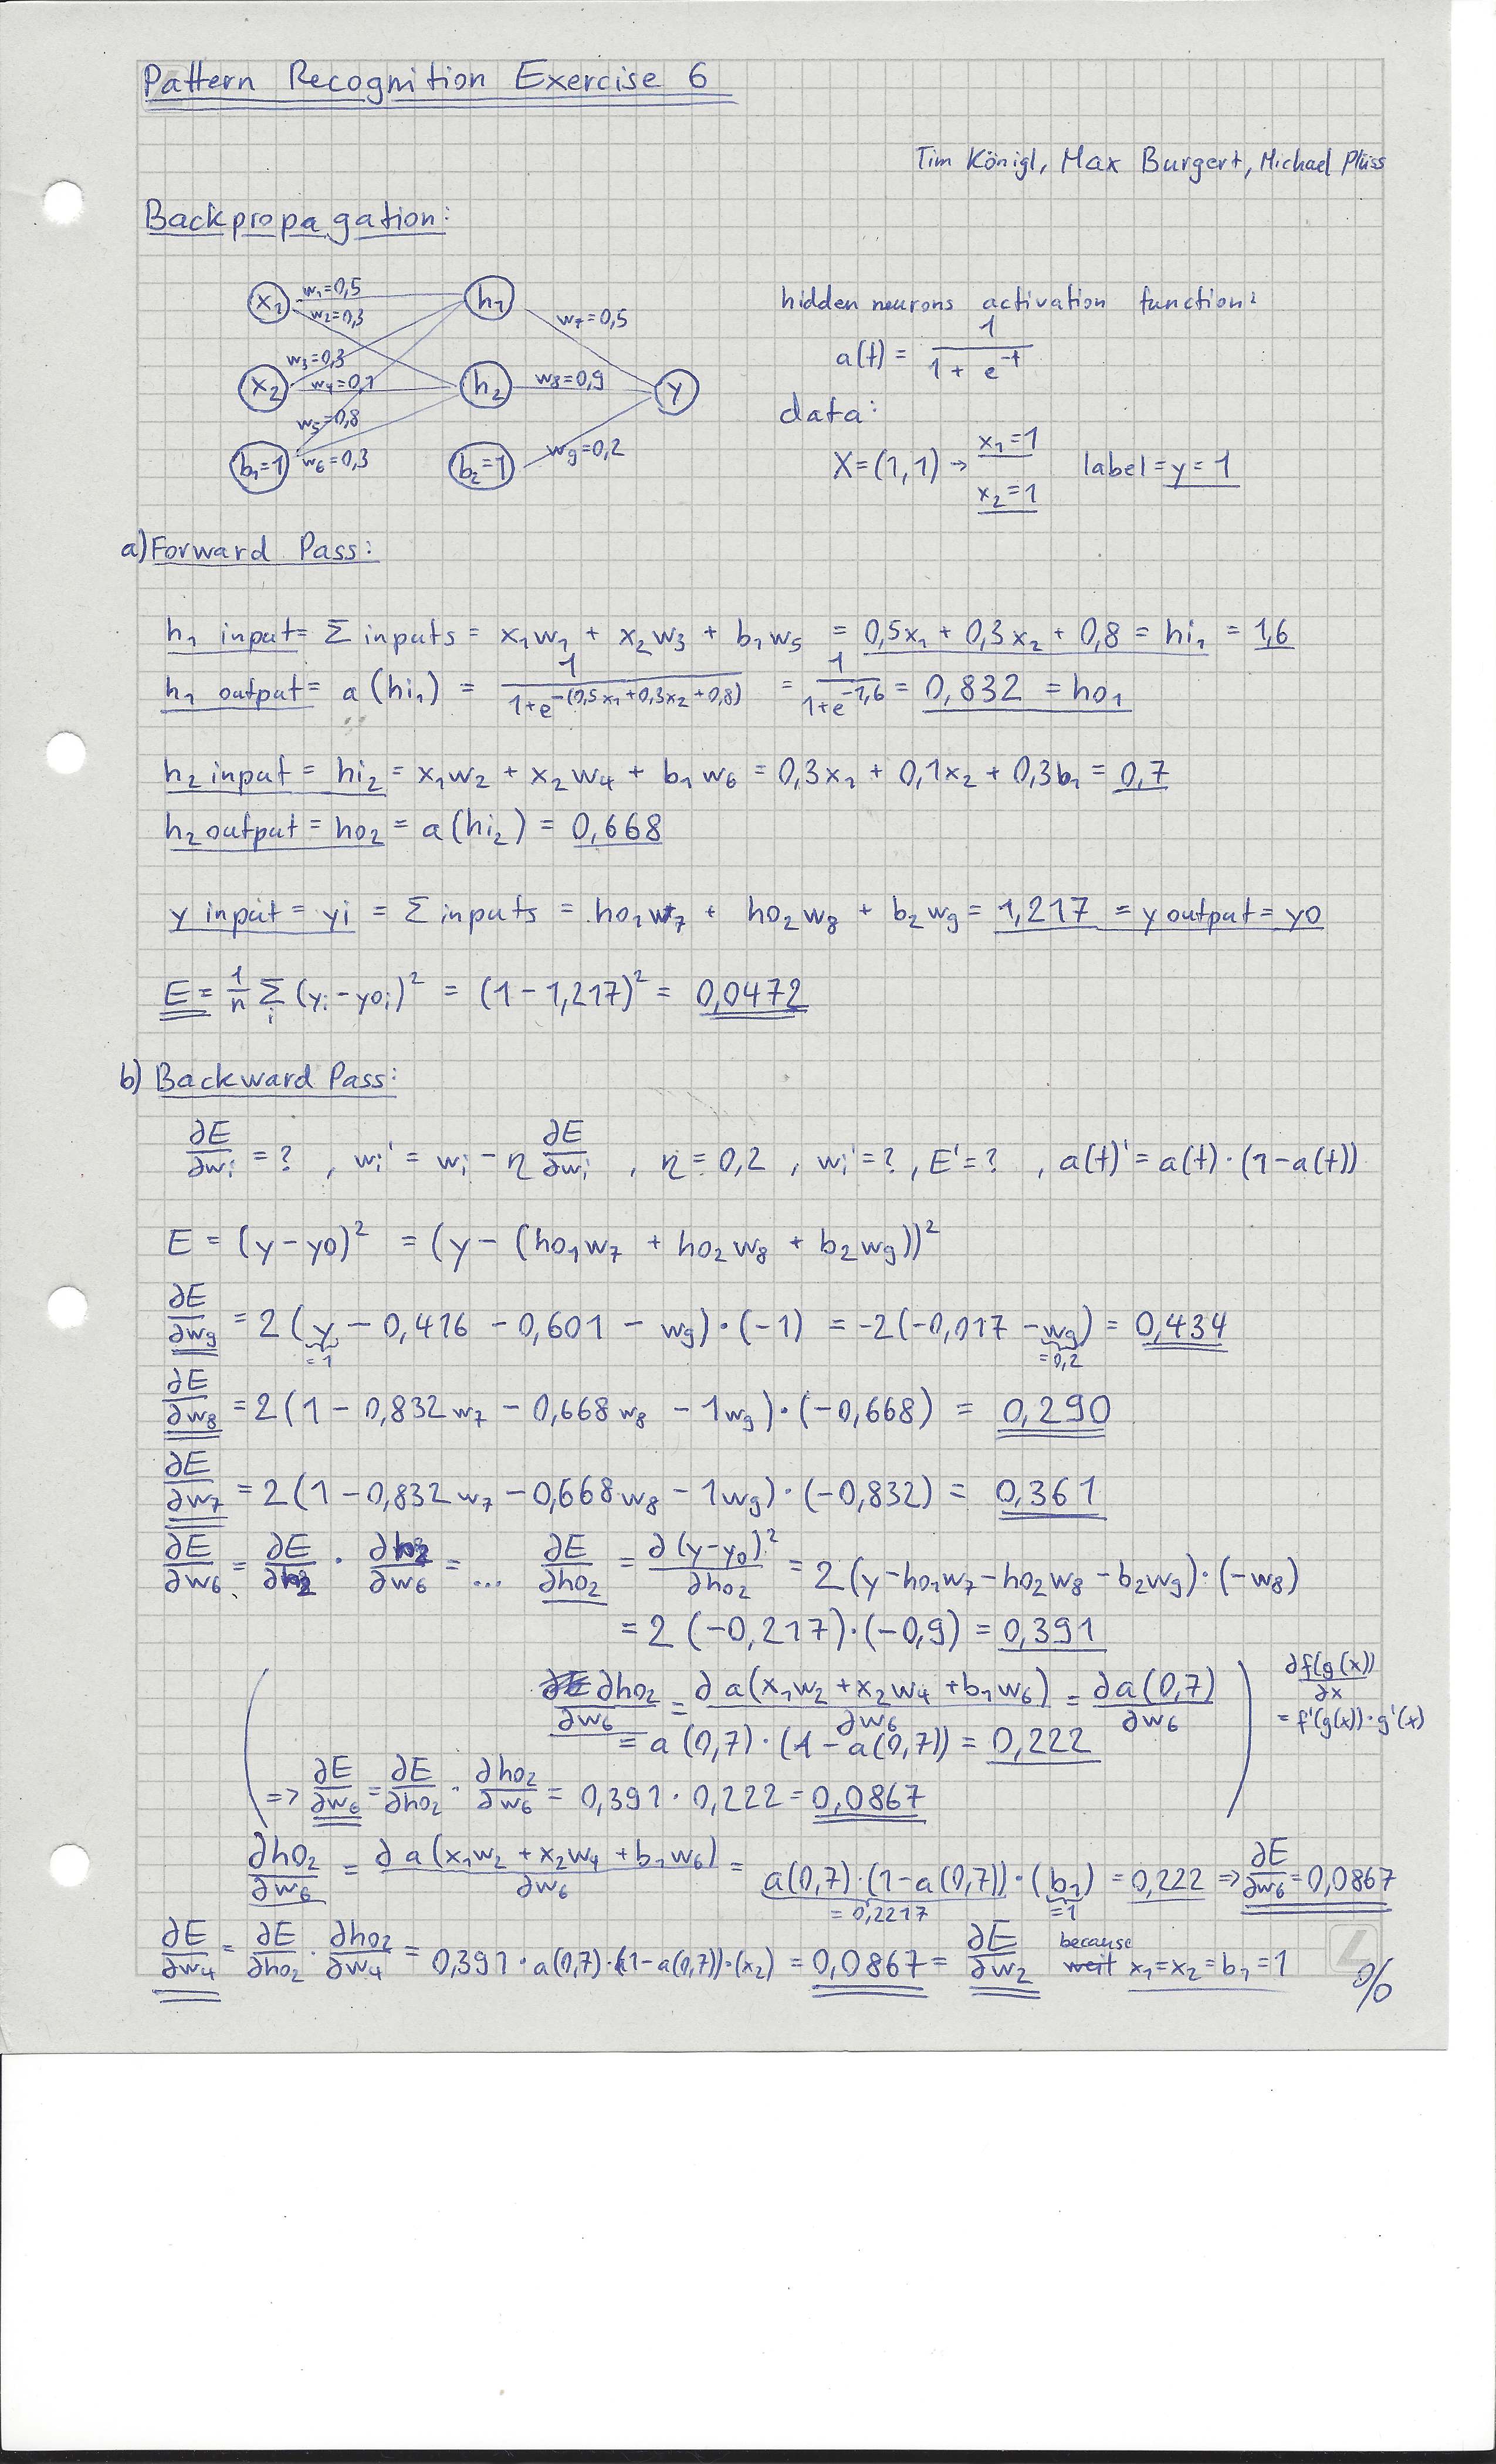 Pattern Recognition Exercise 6
Tim Königl, Max Burgert, Michael Plüss
Backpropagation:
x₁ w₁=0,5 h₁
w₂=0,3 w₇=0,5
w₃=0,3
x₂ w₄=0,1 h₂ w₈=0,9 y
w₅=0,8
b₁=1 w₆=0,3 b₂=1 w₉=0,2
hidden neurons activation function:
a(t) = 1/(1 + e^-t)
data:
X=(1,1) → x₁=1 x₂=1 label=y=1
a) Forward Pass:
h₁ input= Σ inputs = x₁w₁ + x₂w₃ + b₁w₅ = 0,5x₁ + 0,3x₂ + 0,8 = hi₁ = 1,6
h₁ output= a(hi₁) = 1/(1+e^-(0,5x₁+0,3x₂+0,8)) = 1/(1+e^-1,6) = 0,832 = ho₁
h₂ input = hi₂ = x₁w₂ + x₂w₄ + b₁w₆ = 0,3x₁ + 0,1x₂ + 0,3b₁ = 0,7
h₂ output = ho₂ = a(hi₂) = 0,668
y input = yi = Σ inputs = ho₁w₇ + ho₂w₈ + b₂w₉ = 1,217 = y output = yo
E = 1/n Σᵢ (yᵢ-yoᵢ)² = (1-1,217)² = 0,0472
b) Backward Pass:
∂E/∂wᵢ = ? , wᵢ' = wᵢ - η ∂E/∂wᵢ , η = 0,2 , wᵢ'=? , E'=? , a(t)' = a(t)·(1-a(t))
E = (y-yo)² = (y - (ho₁w₇ + ho₂w₈ + b₂w₉))²
∂E/∂w₉ = 2(y - 0,416 - 0,601 - w₉)·(-1) = -2(-0,017 - w₉) = 0,434
=1 =0,2
∂E/∂w₈ = 2(1 - 0,832w₇ - 0,668w₈ - 1w₉)·(-0,668) = 0,290
∂E/∂w₇ = 2(1 - 0,832w₇ - 0,668w₈ - 1w₉)·(-0,832) = 0,361
∂E/∂w₆ = ∂E/∂ho₂ · ∂ho₂/∂w₆ = ... ∂E/∂ho₂ = ∂(y-yo)²/∂ho₂ = 2(y-ho₁w₇-ho₂w₈-b₂w₉)·(-w₈)
= 2(-0,217)·(-0,9) = 0,391
∂ho₂/∂w₆ = ∂a(x₁w₂+x₂w₄+b₁w₆)/∂w₆ = ∂a(0,7)/∂w₆
∂f(g(x))/∂x = f'(g(x))·g'(x)
= a(0,7)·(1-a(0,7)) = 0,222
=> ∂E/∂w₆ = ∂E/∂ho₂ · ∂ho₂/∂w₆ = 0,391·0,222 = 0,0867
∂ho₂/∂w₆ = ∂a(x₁w₂+x₂w₄+b₁w₆)/∂w₆ = a(0,7)·(1-a(0,7))·(b₁) = 0,222 ⇒ ∂E/∂w₆ = 0,0867
= 0,2217 =1
∂E/∂w₄ = ∂E/∂ho₂ · ∂ho₂/∂w₄ = 0,391·a(0,7)·(1-a(0,7))·(x₂) = 0,0867 = ∂E/∂w₂ because weil x₁=x₂=b₁=1
%